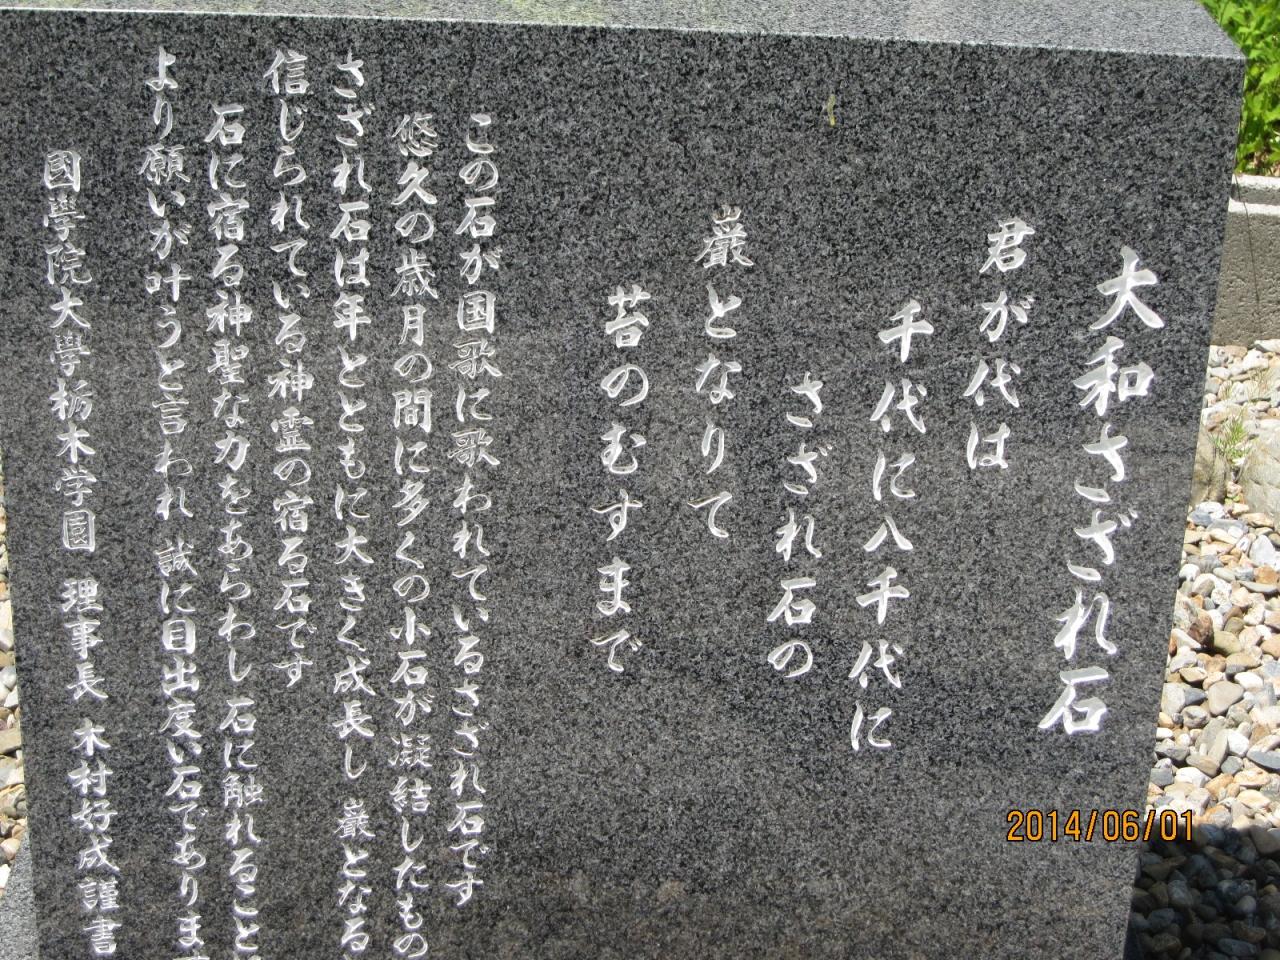 大和さざれ石
君が代は
千代に八千代に
さざれ石の
巌となりて
苔のむすまで
この石が国歌に歌われているさざれ石です
悠久の歳月の間に多くの小石が凝結したもの
さざれ石は年とともに大きく成長し 巌となる
信じられている神霊の宿る石です
石に宿る神聖な力をあらわし石に触れること
より願いが叶うと言われ 誠に目出度い石であります
國學院大學栃木学園 理事長 木村好成謹書
2014/06/01